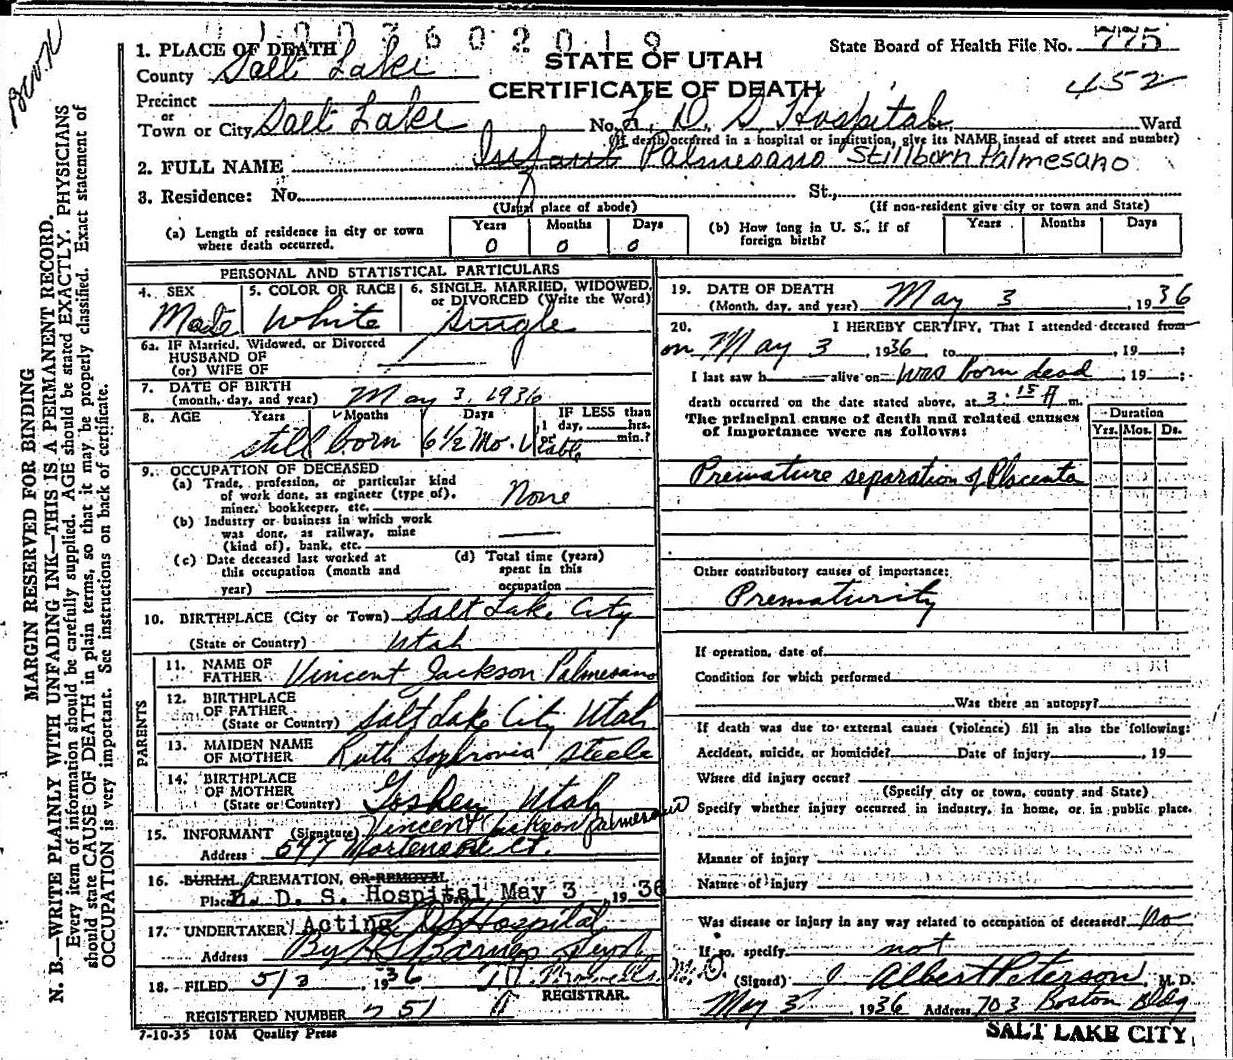 1. PLACE OF DEATH
County Salt Lake
STATE OF UTAH
CERTIFICATE OF DEATH
State Board of Health File No. 775
452
Precinct
or
Town or City Salt Lake No. L. D. S Hospital, Ward
(If death occurred in a hospital or institution, give its NAME instead of street and number)
2. FULL NAME Infant Palmesano Stillborn Palmesano
3. Residence: No. St.,
(Usual place of abode) (If non-resident give city or town and State)
(a) Length of residence in city or town where death occurred. Years 0 Months 0 Days 0
(b) How long in U. S., if of foreign birth? Years Months Days
PERSONAL AND STATISTICAL PARTICULARS
4. SEX Male
5. COLOR OR RACE White
6. SINGLE, MARRIED, WIDOWED, or DIVORCED (Write the Word) Single
6a. IF Married, Widowed, or Divorced
HUSBAND OF
(or) WIFE OF
7. DATE OF BIRTH
(month, day, and year) May 3, 1936
8. AGE Years Months Days IF LESS than
1 day, hrs.
or min.?
still born 6 1/2 Mo.
9. OCCUPATION OF DECEASED
(a) Trade, profession, or particular kind
of work done, as engineer (type of),
miner, bookkeeper, etc. None
(b) Industry or business in which work
was done, as railway, mine
(kind of), bank, etc.
(c) Date deceased last worked at
this occupation (month and
year)
(d) Total time (years)
spent in this
occupation
10. BIRTHPLACE (City or Town) Salt Lake City
(State or Country) Utah
PARENTS
11. NAME OF
FATHER Vincent Jackson Palmesano
12. BIRTHPLACE
OF FATHER
(State or Country) Salt Lake City Utah
13. MAIDEN NAME
OF MOTHER Ruth Sophronia Steele
14. BIRTHPLACE
OF MOTHER
(State or Country) Goshen Utah
15. INFORMANT (Signature) Vincent Jackson Palmesano
Address 547 Mortensen Ct.
16. BURIAL, CREMATION, OR REMOVAL
Place L. D. S. Hospital May 3, 1936
17. UNDERTAKER Acting L D S Hospital
Address By Barnes Supt
18. FILED 5/3, 1936
REGISTRAR.
REGISTERED NUMBER 751
7-10-35 10M Quality Press
19. DATE OF DEATH
(Month, day, and year) May 3, 1936
20. I HEREBY CERTIFY, That I attended deceased from
on May 3, 1936, to , 19 ;
I last saw h alive on was born dead, 19 ;
death occurred on the date stated above, at 3:15 A m.
The principal cause of death and related causes
of importance were as follows:
Duration
Yrs. Mos. Ds.
Premature separation of Placenta
Other contributory causes of importance:
Prematurity
If operation, date of
Condition for which performed
Was there an autopsy?
If death was due to external causes (violence) fill in also the following:
Accident, suicide, or homicide? Date of injury 19
Where did injury occur?
(Specify city or town, county and State)
Specify whether injury occurred in industry, in home, or in public place.
Manner of injury
Nature of injury
Was disease or injury in any way related to occupation of deceased? No
If so, specify not
(Signed) J. Albert Peterson, M. D.
May 3, 1936 Address 703 Boston Bldg
SALT LAKE CITY
MARGIN RESERVED FOR BINDING
N. B.—WRITE PLAINLY WITH UNFADING INK—THIS IS A PERMANENT RECORD.
Every item of information should be carefully supplied. AGE should be stated EXACTLY. PHYSICIANS
should state CAUSE OF DEATH in plain terms, so that it may be properly classified. Exact statement of
OCCUPATION is very important. See instructions on back of certificate.